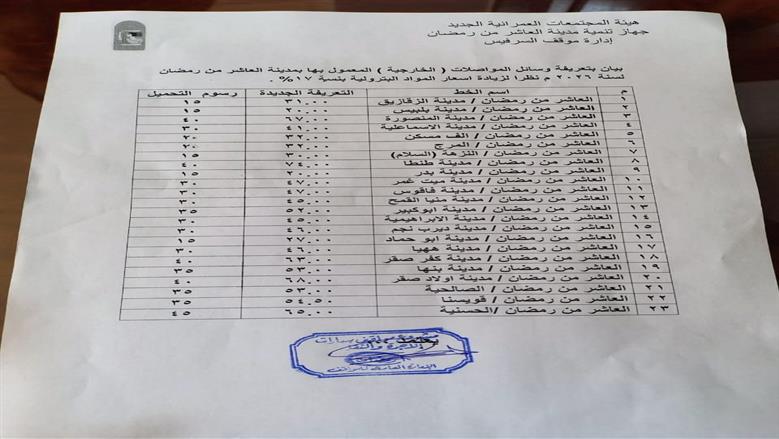 هيئة المجتمعات العمرانية الجديد
جهاز تنمية مدينة العاشر من رمضان
إدارة موقف السرفيس
بيان بتعريفة وسائل المواصلات ( الخارجية ) المعمول بها بمدينة العاشر من رمضان
لسنة ٢٠٢٦ م نظرا لزيادة اسعار المواد البترولية بنسبة ١٧% .
م اسم الخط التعريفة الجديدة رسوم التحميل
١ العاشر من رمضان / مدينة الزقازيق ٣١.٠٠ ١٥
٢ العاشر من رمضان / مدينة بلبيس ٢٠.٠٠ ١٥
٣ العاشر من رمضان / مدينة المنصورة ٦٧.٠٠ ٤٠
٤ العاشر من رمضان / مدينة الاسماعلية ٤١.٠٠ ٣٠
٥ العاشر من رمضان / الف مسكن ٣٢.٠٠ ٢٠
٦ العاشر من رمضان / المرج ٣٢.٠٠ ٢٠
٧ العاشر من رمضان / النزهة (السلام) ٣٠.٠٠ ١٥
٨ العاشر من رمضان / مدينة طنطا ٧٤.٠٠ ٤٠
٩ العاشر من رمضان / مدينة بدر ٢٠.٠٠ ١٥
١٠ العاشر من رمضان / مدينة ميت غمر ٤٧.٠٠ ٣٠
١١ العاشر من رمضان / مدينة فاقوس ٤٧.٠٠ ٣٠
١٢ العاشر من رمضان / مدينة منيا القمح ٤٥.٠٠ ٣٠
١٣ العاشر من رمضان / مدينة ابوكبير ٥٢.٠٠ ٣٥
١٤ العاشر من رمضان / مدينة الابراهيمية ٤٥.٠٠ ٣٠
١٥ العاشر من رمضان / مدينة ديرب نجم ٤٦.٠٠ ٣٠
١٦ العاشر من رمضان / مدينة ابو حماد ٢٧.٠٠ ١٥
١٧ العاشر من رمضان / مدينة ههيا ٤٦.٠٠ ٣٠
١٨ العاشر من رمضان / مدينة كفر صقر ٦٣.٠٠ ٤٠
١٩ العاشر من رمضان / مدينة بنها ٥٣.٠٠ ٣٥
٢٠ العاشر من رمضان / مدينة اولاد صقر ٦٨.٠٠ ٤٠
٢١ العاشر من رمضان / الصالحية ٥٣.٠٠ ٣٥
٢٢ العاشر من رمضان / قويسنا ٥٤.٥٠ ٣٥
٢٣ العاشر من رمضان /الحسنية ٦٥.٠٠ ٤٥
يعتمد